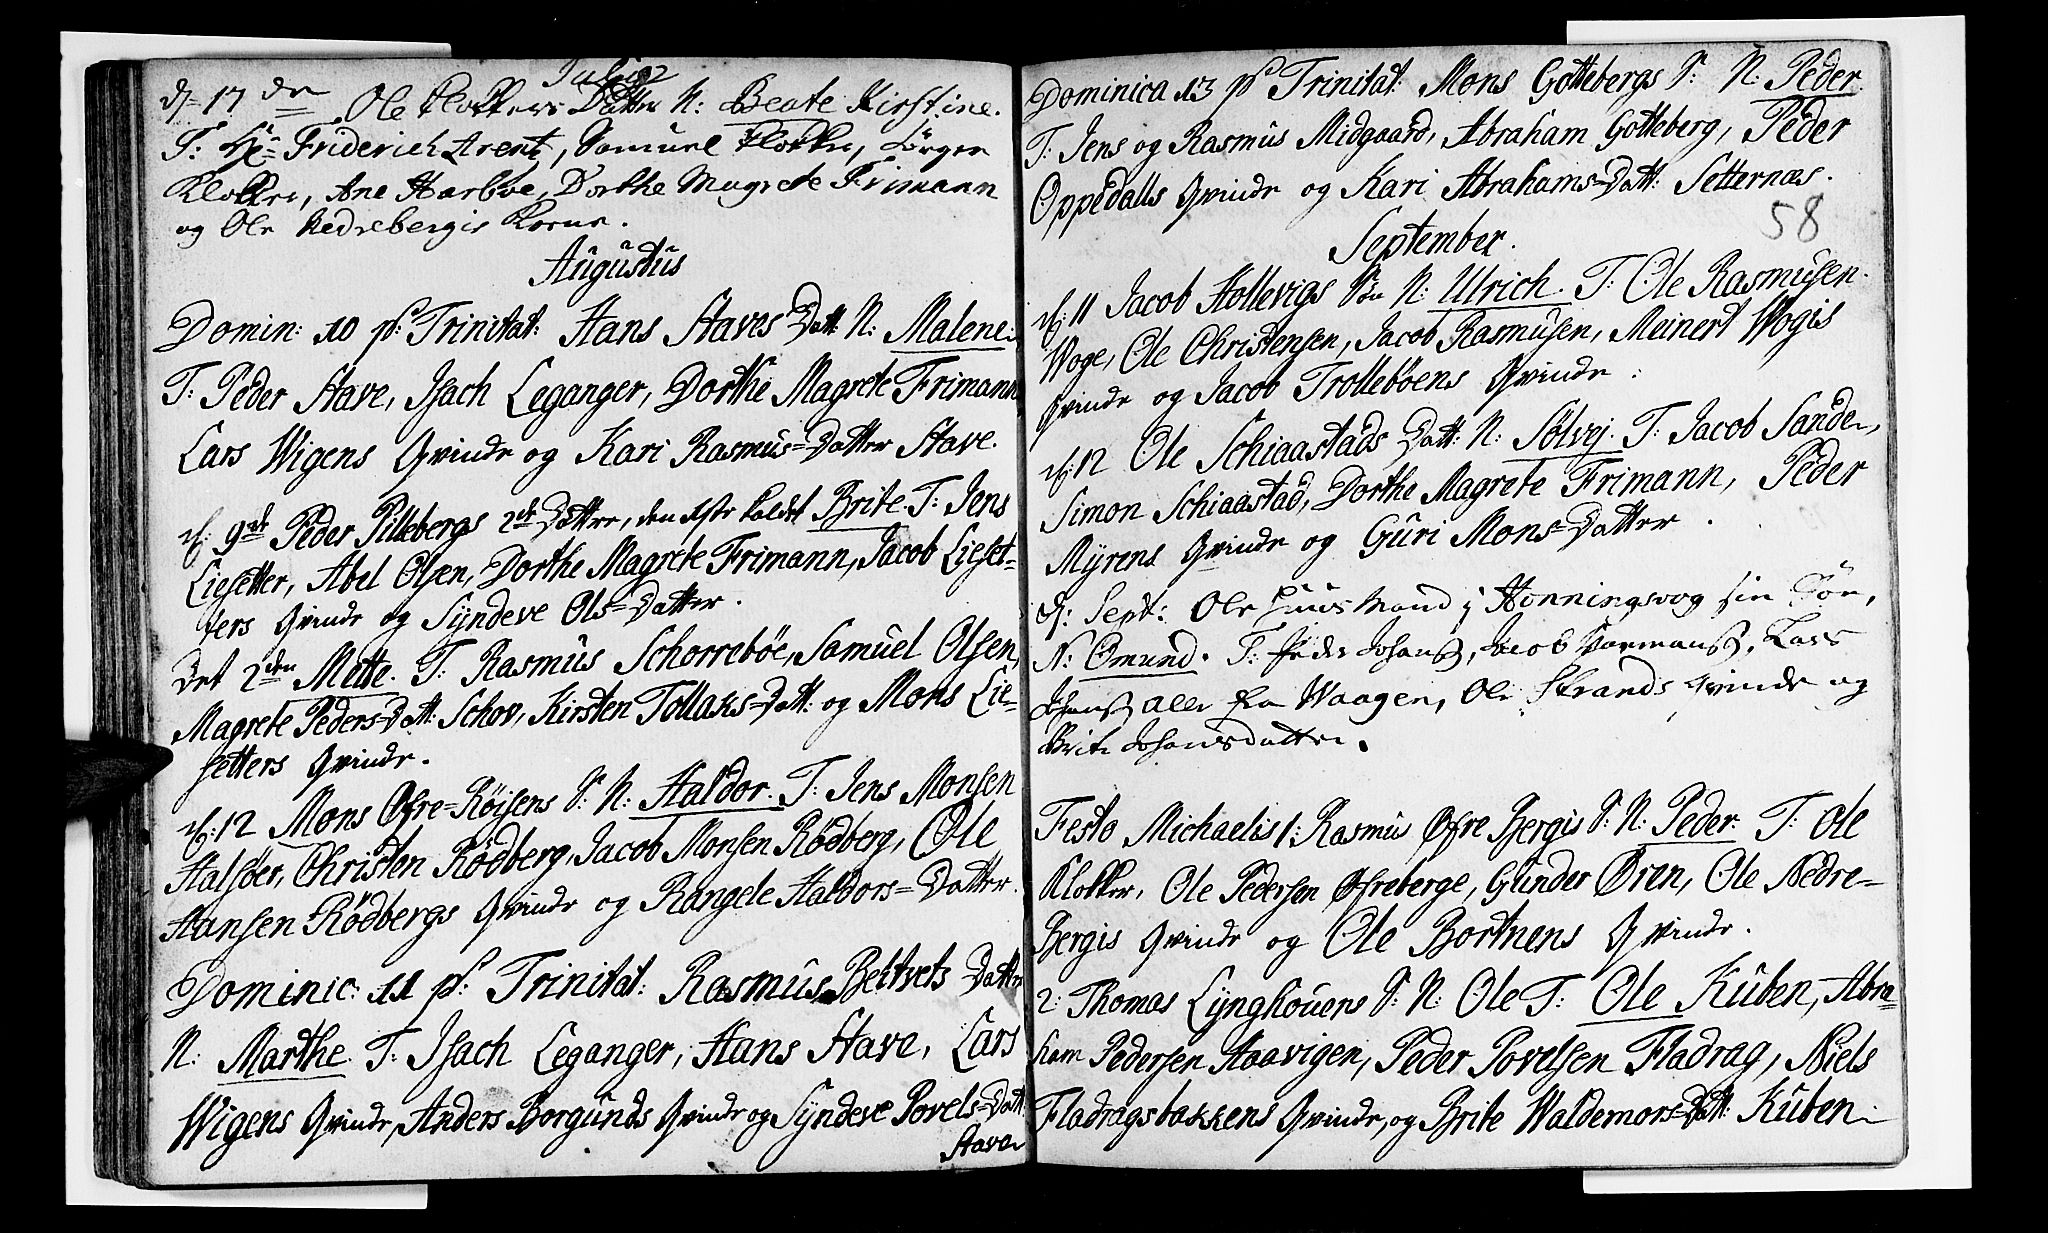 Julius
d: 17 den Ole Klokkers Datter N: Beate Kirstine.
T: Hr: Friderich Arent, Samuel Klokker, Jörgen
Klokker, Ane Harboe, Dorthe Magrete Frimann
og Ole Nedrebergis Kone.
Augustus
Domin: 10 p: Trinitat: Hans Staves Datt: N: Malene.
T: Peder Stave, Isach Leganger, Dorthe Magrete Frimann
Lars Wigens Qvinde og Kari Rasmus=Datter Stave.
d: 9de Peder Pillebergs 2de Døttre, den kaldet Brite. T: Jens
Liesetter, Abel Olsen, Dorthe Magrete Frimann, Jacob Lieset=
ters Qvinde og Syndeve Ols=Datter.
Det 2den Mette. T: Rasmus Schorrebøe, Samuel Olsen,
Magrete Peders=Datt: Schov, Kirsten Tollaks=Datt: og Mons Lie=
setters Qvinde.
d: 12 Mons Øfre=Röisens S: N: Haldor. T: Jens Monsen
Halsöer, Christen Rödberg, Jacob Monsen Rödberg, Ole
Hansen Rödbergs Qvinde og Rangele Haldors=Datter.
Dominic: 11 p: Trinitat: Rasmus Bektvets Datter
N: Marthe. T: Isach Leganger, Hans Stave, Lars
Wigens Qvinde, Anders Borgunds Qvinde og Syndeve Povels=Datt:
Stave
Dominica 13 p: Trinitat: Mons Gottebergs S: N: Peder.
T: Jens og Rasmus Midgaard, Abraham Gotteberg, Peder
Oppedalls Qvinde og Kari Abrahams=Datt: Setternæs.
58
September.
d: 11 Jacob Hollevigs Sön N: Ulrich. T: Ole Rasmusen
Woge, Ole Christensen, Jacob Rasmusen, Meinert Wogis
Qvinde og Jacob Trollebøens Qvinde.
d: 12 Ole Schiaastads Datt: N: Sølvej. T: Jacob Sande,
Simon Schiaastad, Dorthe Magrete Frimann, Peder
Myrens Qvinde og Guri Mons=Datter.
d: Sept: Ole Huus Mand i Honningsvog sin Sön,
N: Omund. T: Peder Johans:, Jacob, Lars
Johans: alle fra Waagen, Ole Strands Qvinde og
Brite Johansdatter.
Festo Michaelis 1: Rasmus Øfre Bergis S: N: Peder. T: Ole
Klokker, Ole Pedersen Øfreberge, Gunder Ören, Ole Nedre=
Bergis Qvinde og Ole Bortnens Qvinde.
2: Thomas Lynghouers S: N: Ole T: Ole Kuben, Abra=
ham Pedersen Haavigen, Peder Povelsen Fladrag, Niels
Fladragsbakkens Qvinde, og Brite Waldemors=Datt: Kuben.